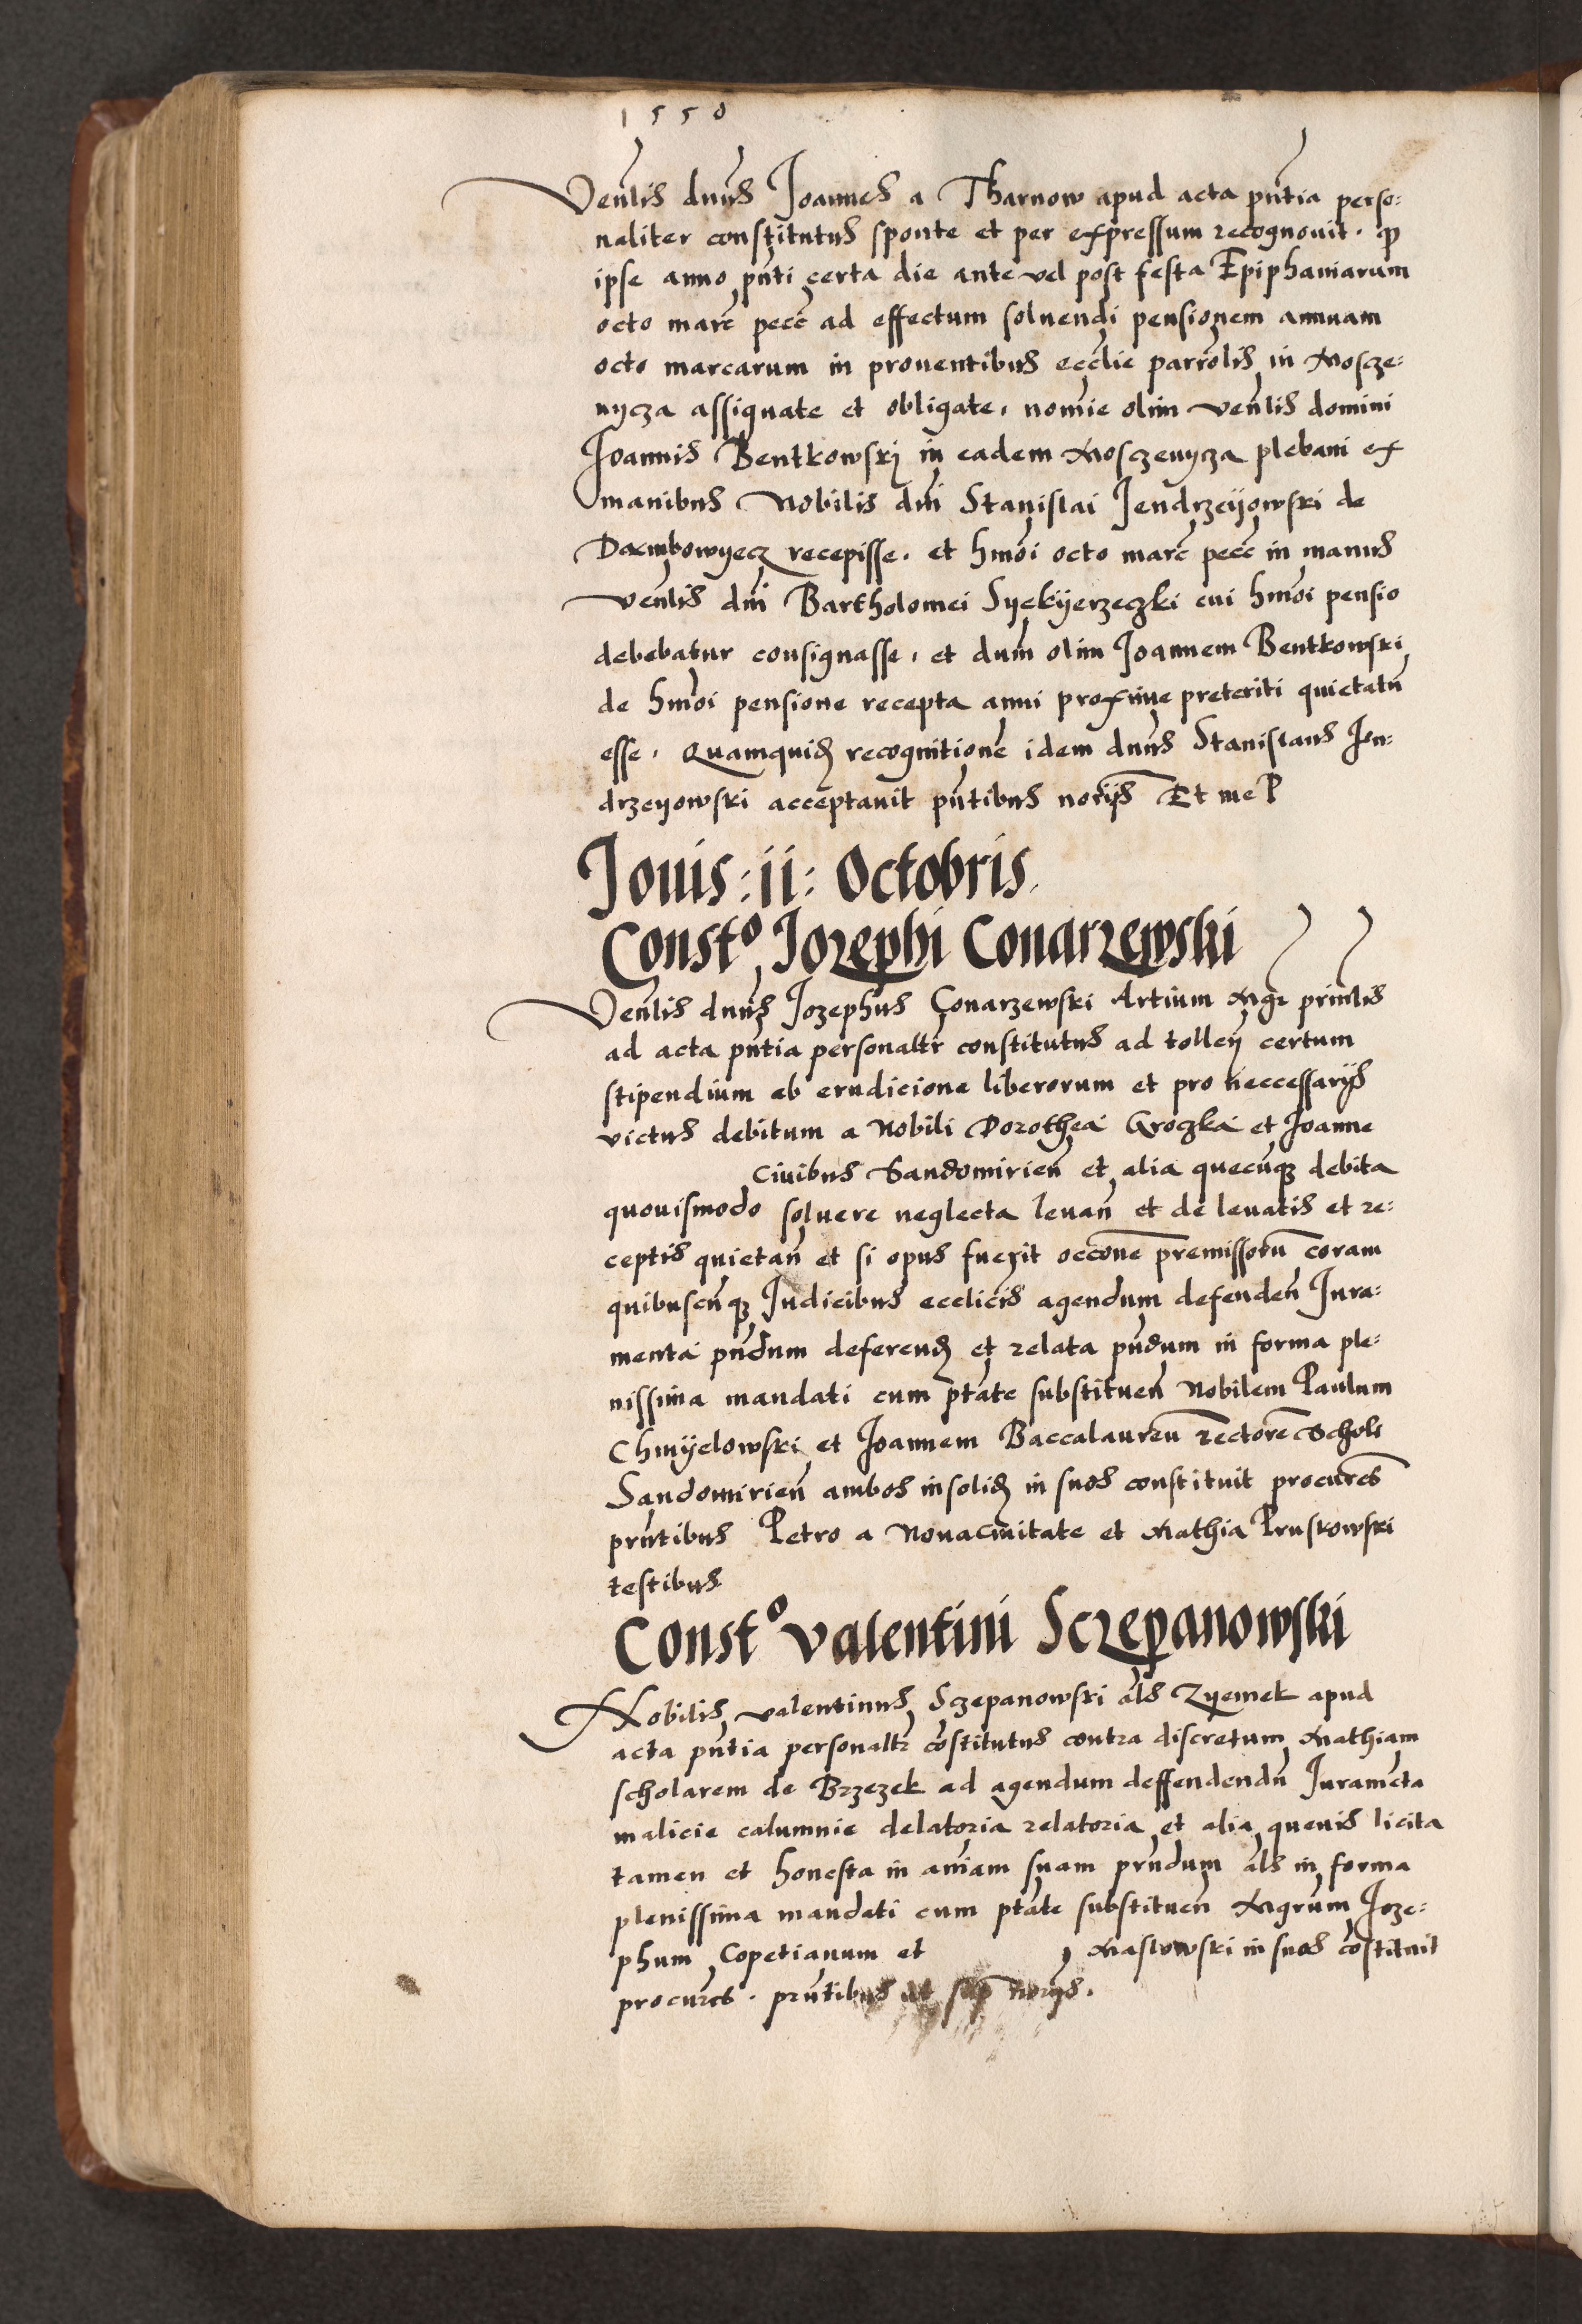 1550
Venlis dnus Joannes a Tharnow apud acta pntia perso:
naliter constitutus sponte et per expressum recognovit. qz
ipse anno pnti certa die ante vel post festa Epiphaniarum
octo marc pecc ad effectum soluendi pensionem annuam
octo marcarum in proventibus ecclie parrolis in Moscze:
nycza assignate et obligate, nomie olim venlis domini
Joannis Bentkowskj in eadem Mosczenycza plebani ex
manibus Nobilis dni Stanislai Jendrzeijowski de
Daembowyecz recepisse. et hmoi octo marc pecc in manus
venlis dni Bartholomei Syekijerzeczki cui hmoi pensio
debebatur consignasse, et dum olim Joannem Bentkowski
de hmoi pensione recepta anni proxime preteriti quietatu
esse. Quamquid recognitione idem dnus Stanislaus Jen:
drzeyowski acceptavit pntibus notijs Et me P
Jouis :ii: Octobris.
Consto Jozephi Conarzewski
Venlis dnus Jozephus Conarzewski Artium Mgr prinlis
ad acta pntia personaltr constitutus ad tollen certum
stipendium ab erudicione liberorum et pro neccessarijs
victus debitum a Nobili Dorothea Groczka et Joanne
Civibus Sandomirien et alia quecunqz debita
quovismodo soluere neglecta levan et de levatis et re:
ceptis quietan et si opus fuerit occone premissoru coram
quibuscunqz Judicibus ecclicis agendum defenden Jura:
menta pndum deferend et relata pndum in forma ple:
nissima mandati cum ptate substituen Nobilem Paulum
Chmyelowski et Joannem Baccalaureu rectore Schole
Sandomirien ambos insolid in suos constituit procures
prntibus Petro a Novacivitate et Mathia Pruskowski
testibus
Consto Valentini Sczepanowski
Nobilis valentinus Sczepanowski als Zyemek apud
acta pntia personaltr costitutus contra discretum Mathiam
scholarem de Brzezek ad agendum deffendendu Juramcta
malicie calumnie delatoria relatoria et alia quevis licita
tamen et honesta in aniam suam prndum als in forma
plenissima mandati cum ptate substituen Mgrum Joze:
phum Copetianum et Maslowski in suos costituit
procures. prntibus ut sup noryis.